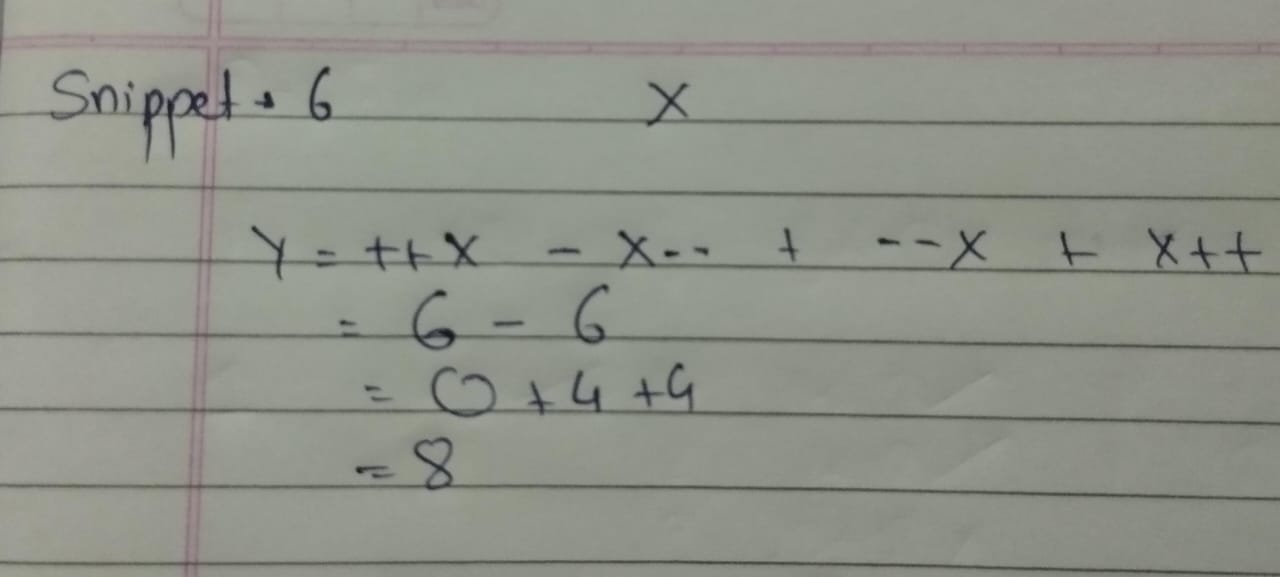 Snippet • 6 X
Y = ++X - X-- + --X + X++
= 6 - 6
= 0 + 4 + 4
= 8